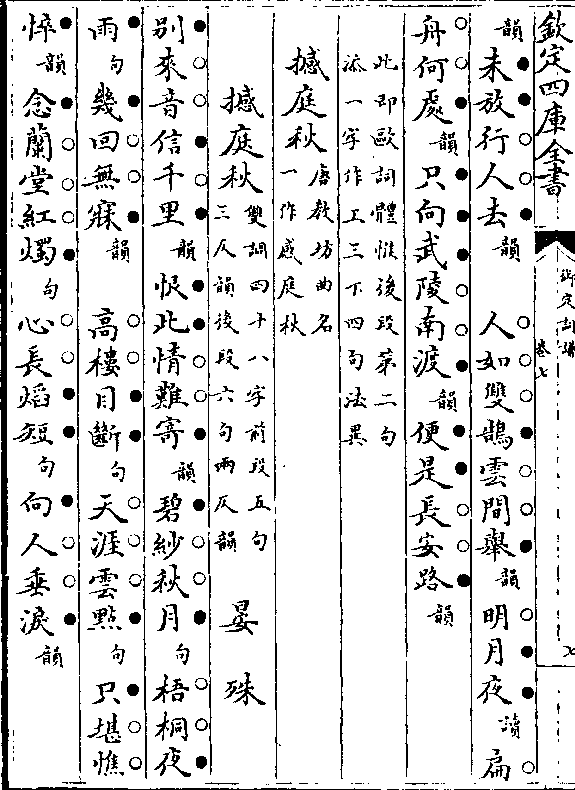 欽定四庫全書
御定詞譜
卷七
韻未放行人去韻 人如雙鵲雲間舉韻明月夜讀扁
舟何處韻只向武陵南渡韻便是長安路韻
此即歐詞體惟後段第二句
添一字作上三下四句法異
撼庭秋 唐教坊曲名
一作感庭秋
撼庭秋 雙調四十八字前段五句
三仄韻後段六句兩仄韻 晏殊
别來音信千里韻恨此情難寄韻碧紗秋月句梧桐夜
雨句幾回無寐韻 高樓目斷句天涯雲點句只堪憔
悴韻念蘭堂紅燭句心長焰短句向人垂淚韻